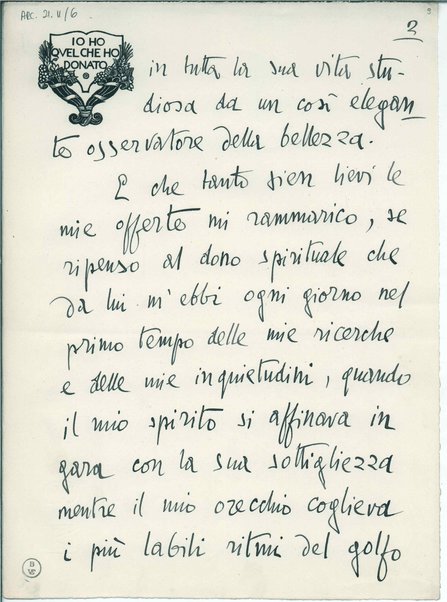 ARC. 21. II/6
3
IO HO
QVEL CHE HO
DONATO
in tutta la sua vita stu-
diosa da un così elegan
te osservatore della bellezza.
E che tanto sien lievi le
mie offerte mi rammarico, se
ripenso al dono spirituale che
da lui m'ebbi ogni giorno nel
primo tempo delle mie ricerche
e delle mie inquietudini, quando
il mio spirito si affinava in
gara con la sua sottigliezza
mentre il mio orecchio coglieva
i più labili ritmi del golfo